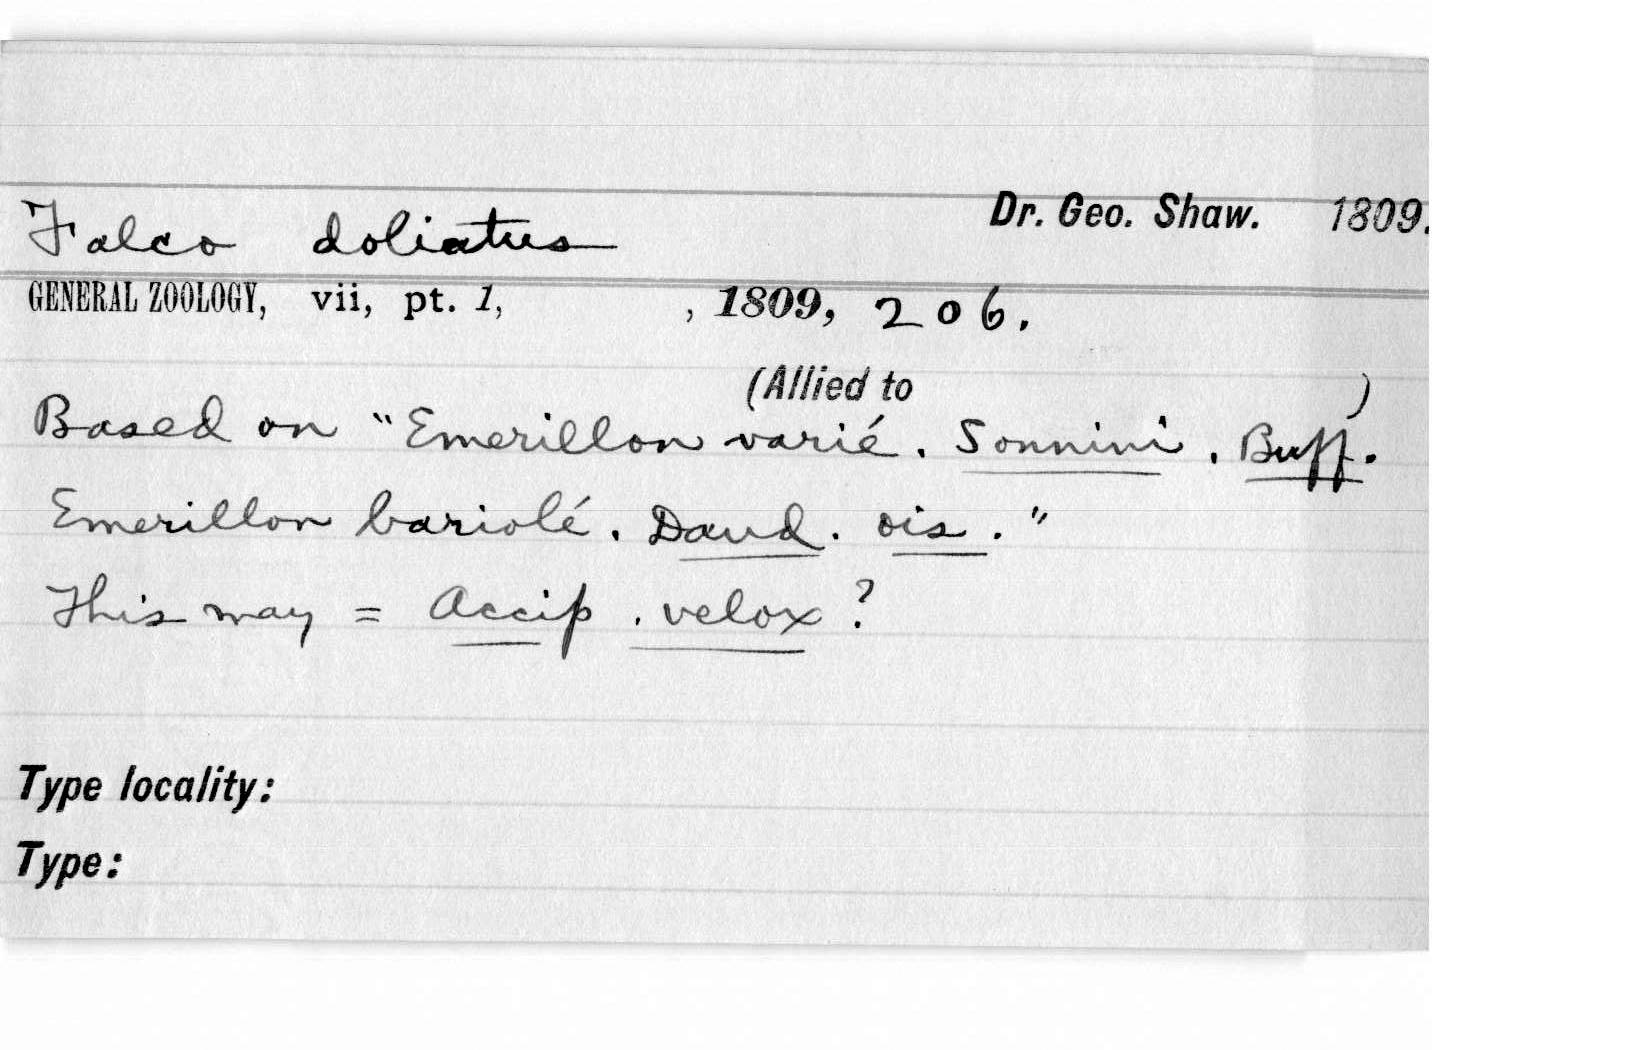 Dr. Geo. Shaw. 1809.
Falco doliatus
GENERAL ZOOLOGY, vii, pt. 1, , 1809, 206.
(Allied to )
Based on "Emerillon varié. Sonnini. Buff.
Emerillon bariolé. Daud. ois."
This may = Accip. velox?
Type locality:
Type: